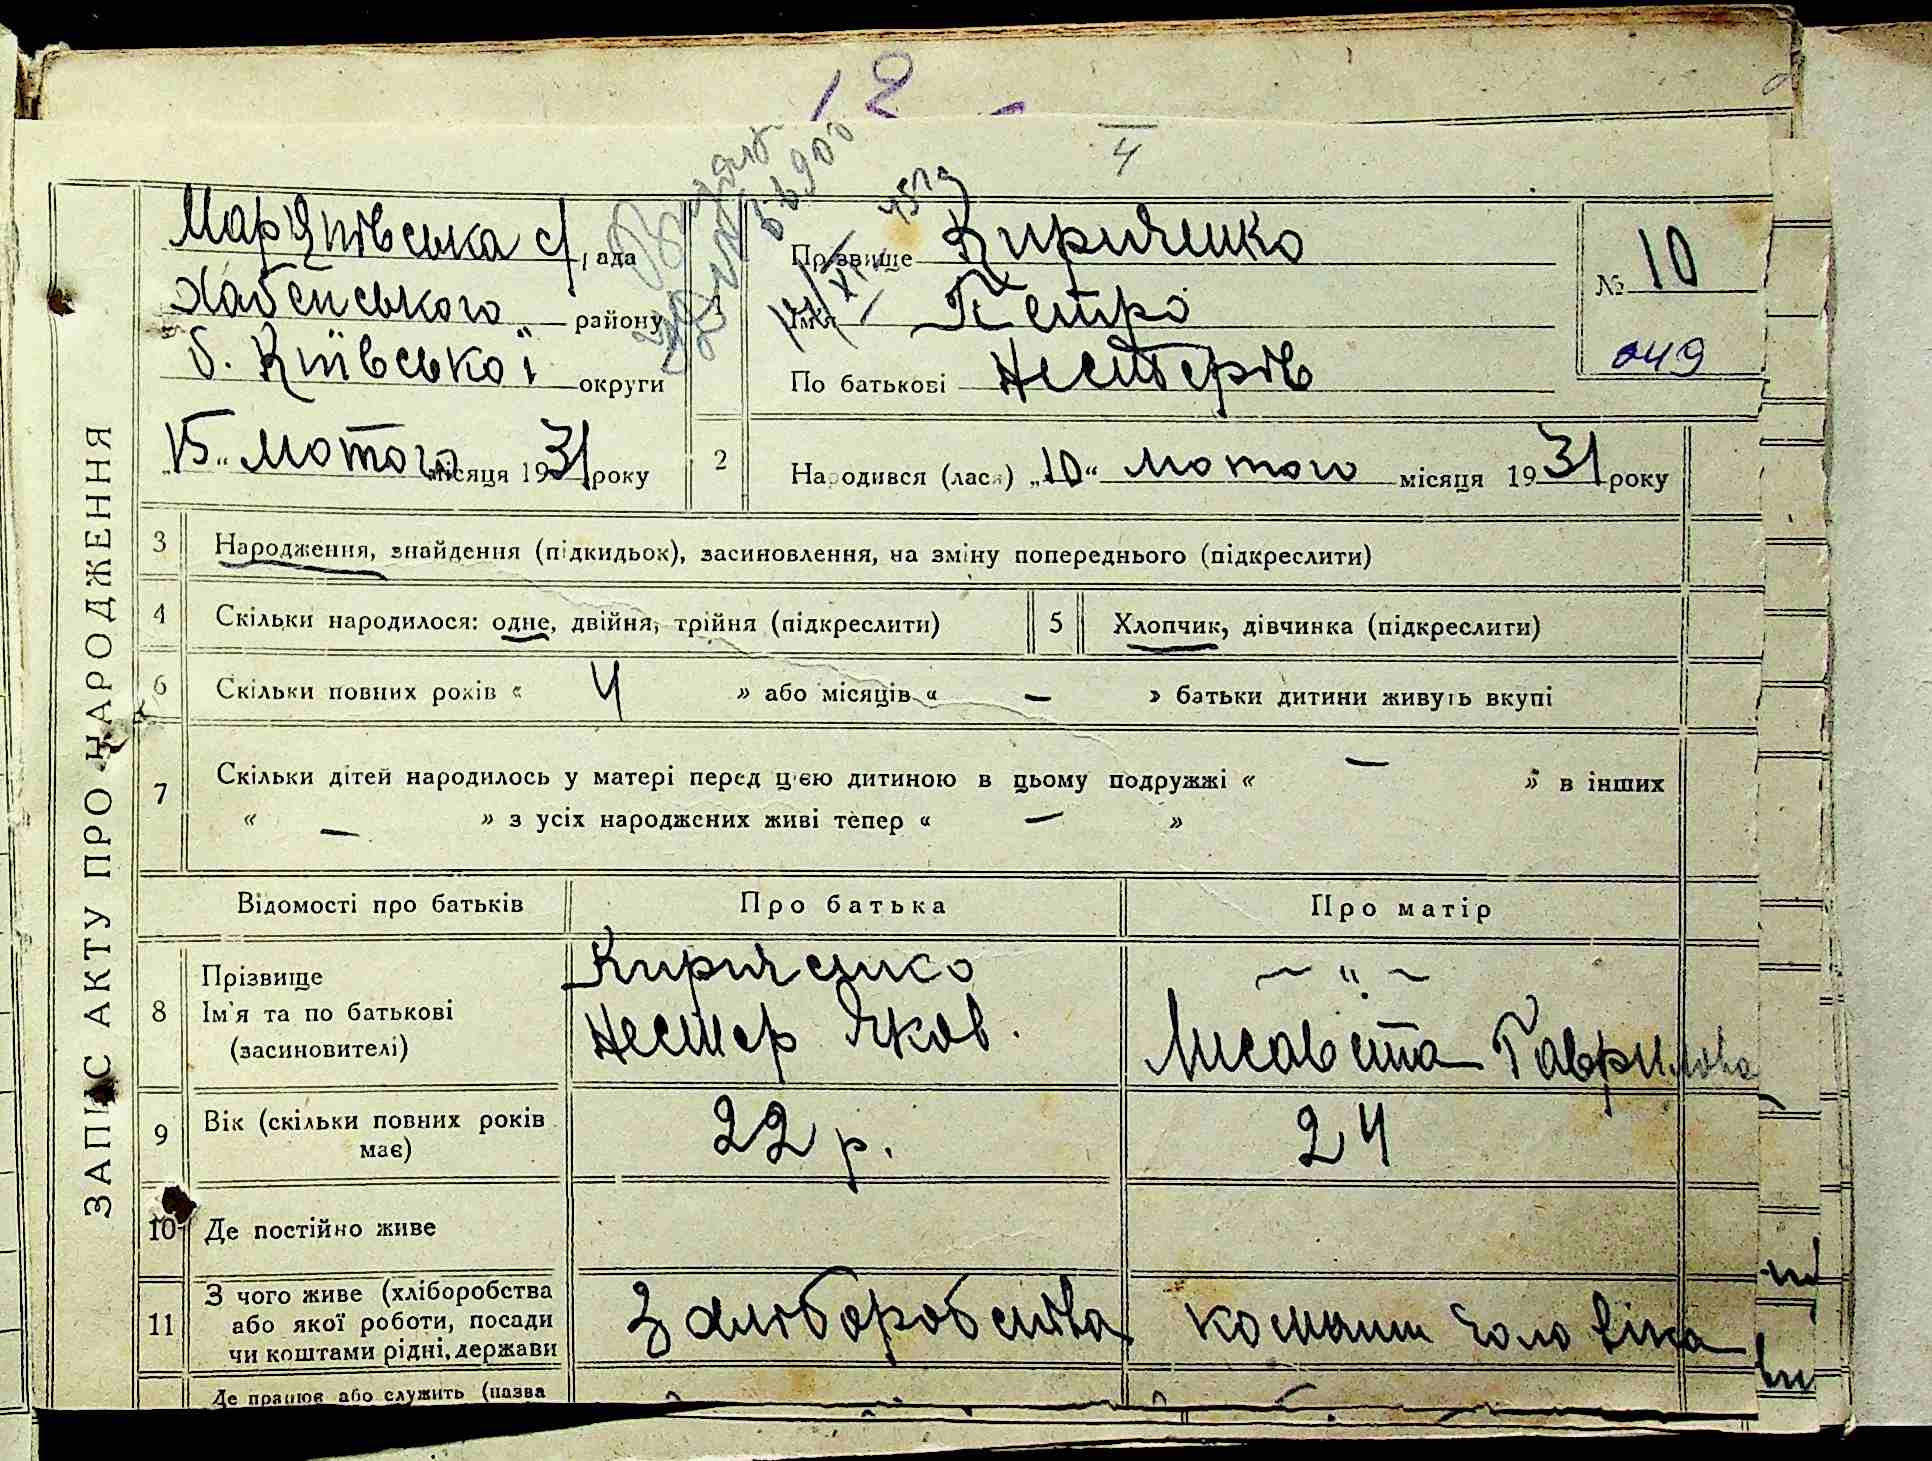 ЗАПИС АКТУ ПРО НАРОДЖЕННЯ
Мар'янівська с/рада
Хабенського району
б. Київської округи
„15“ лютого місяця 1931 року
4
1
Прізвище Кириченко
Ім'я Петро
По батькові Нестерів
№ 10
049
2 Народився (лася) „10“ лютого місяця 1931 року
3 Народження, знайдення (підкидьок), засиновлення, на зміну попереднього (підкреслити)
4 Скільки народилося: одне, двійня, трійня (підкреслити)
5 Хлопчик, дівчинка (підкреслити)
6 Скільки повних років « 4 » або місяців « — » батьки дитини живуть вкупі
7 Скільки дітей народилось у матері перед цією дитиною в цьому подружжі « — » в інших
« — » з усіх народжених живі тепер « — »
Відомості про батьків Про батька Про матір
8 Прізвище Кириченко — " —
Ім'я та по батькові Нестер Яков. Лисавета Гаврилова
(засиновителі)
9 Вік (скільки повних років 22 р. 24
має)
10 Де постійно живе
11 З чого живе (хліборобства
або якої роботи, посади З хліборобства коштом чоловіка
чи коштами рідні, держави
Де працює або служить (назва